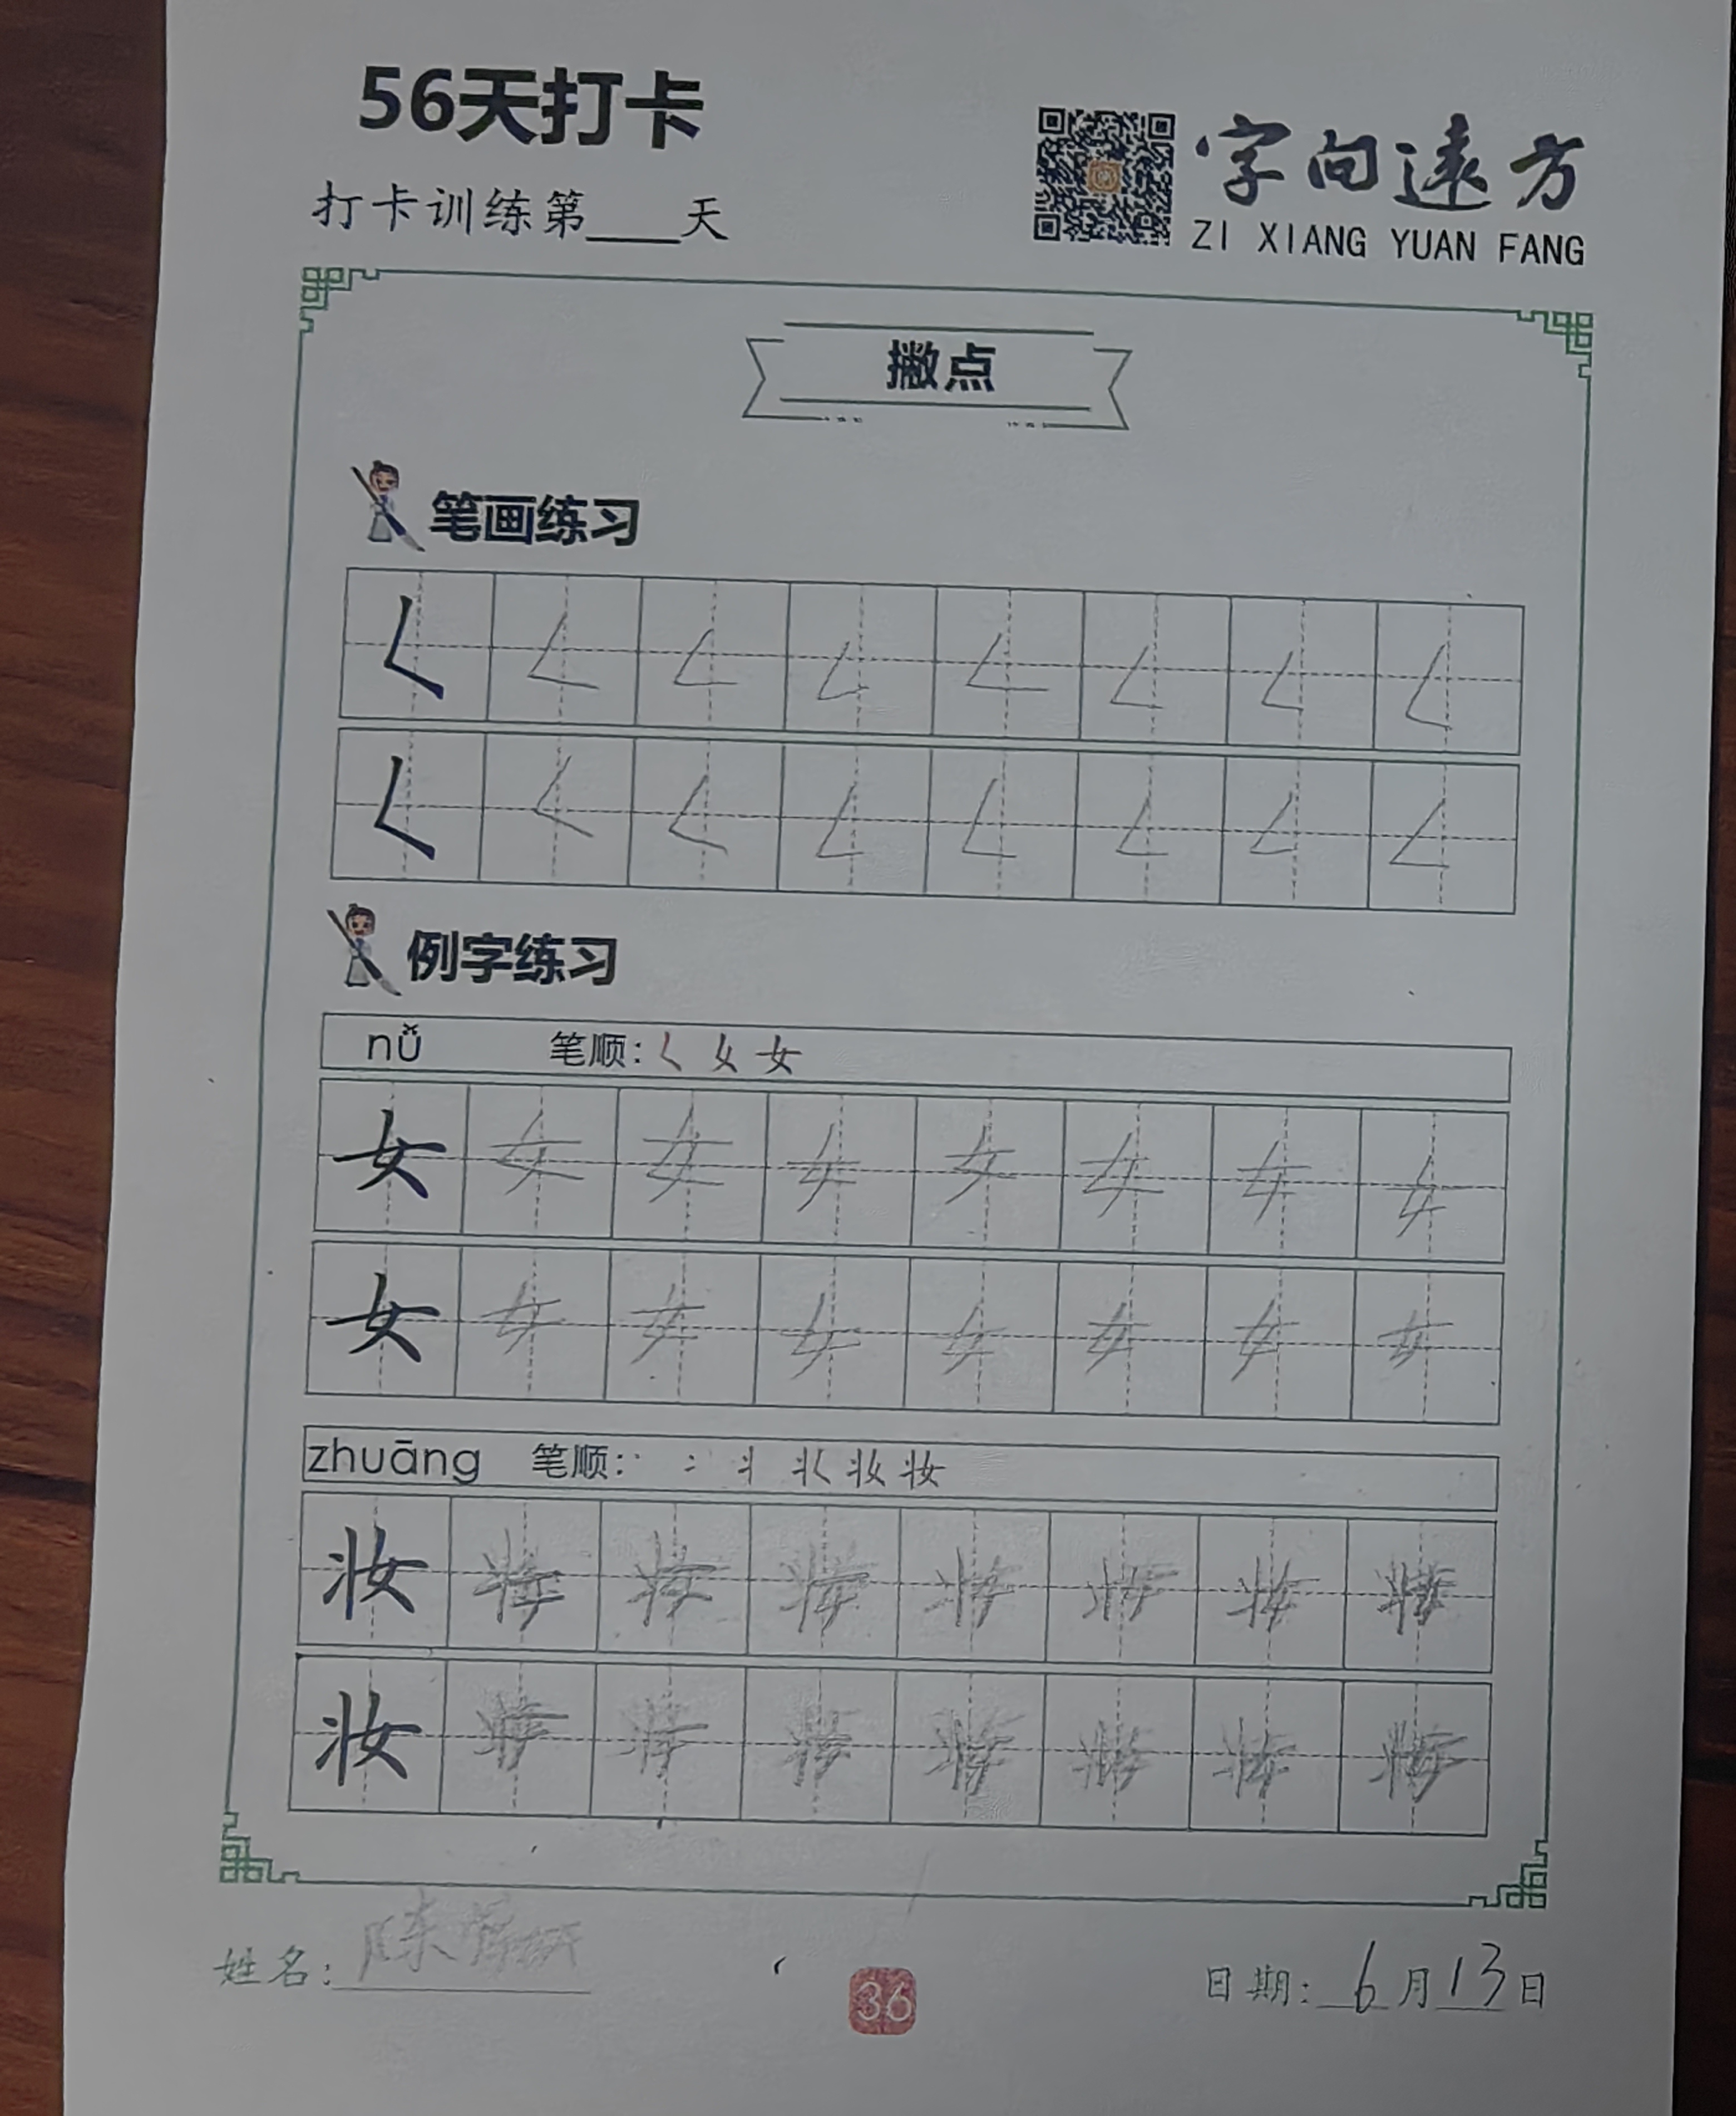 56天打卡
打卡训练第____天
字向遠方
ZI XIANG YUAN FANG
撇点
笔画练习
𡿨 𡿨 𡿨 𡿨 𡿨 𡿨 𡿨 𡿨
𡿨 𡿨 𡿨 𡿨 𡿨 𡿨 𡿨 𡿨
例字练习
nǚ 笔顺: 𡿨 女 女
女 女 女 女 女 女 女 女
女 女 女 女 女 女 女 女
zhuāng 笔顺: 丬 妆 妆
妆 妆 妆 妆 妆 妆 妆 妆
妆 妆 妆 妆 妆 妆 妆 妆
姓名: 陈
36
日期: 6月13日